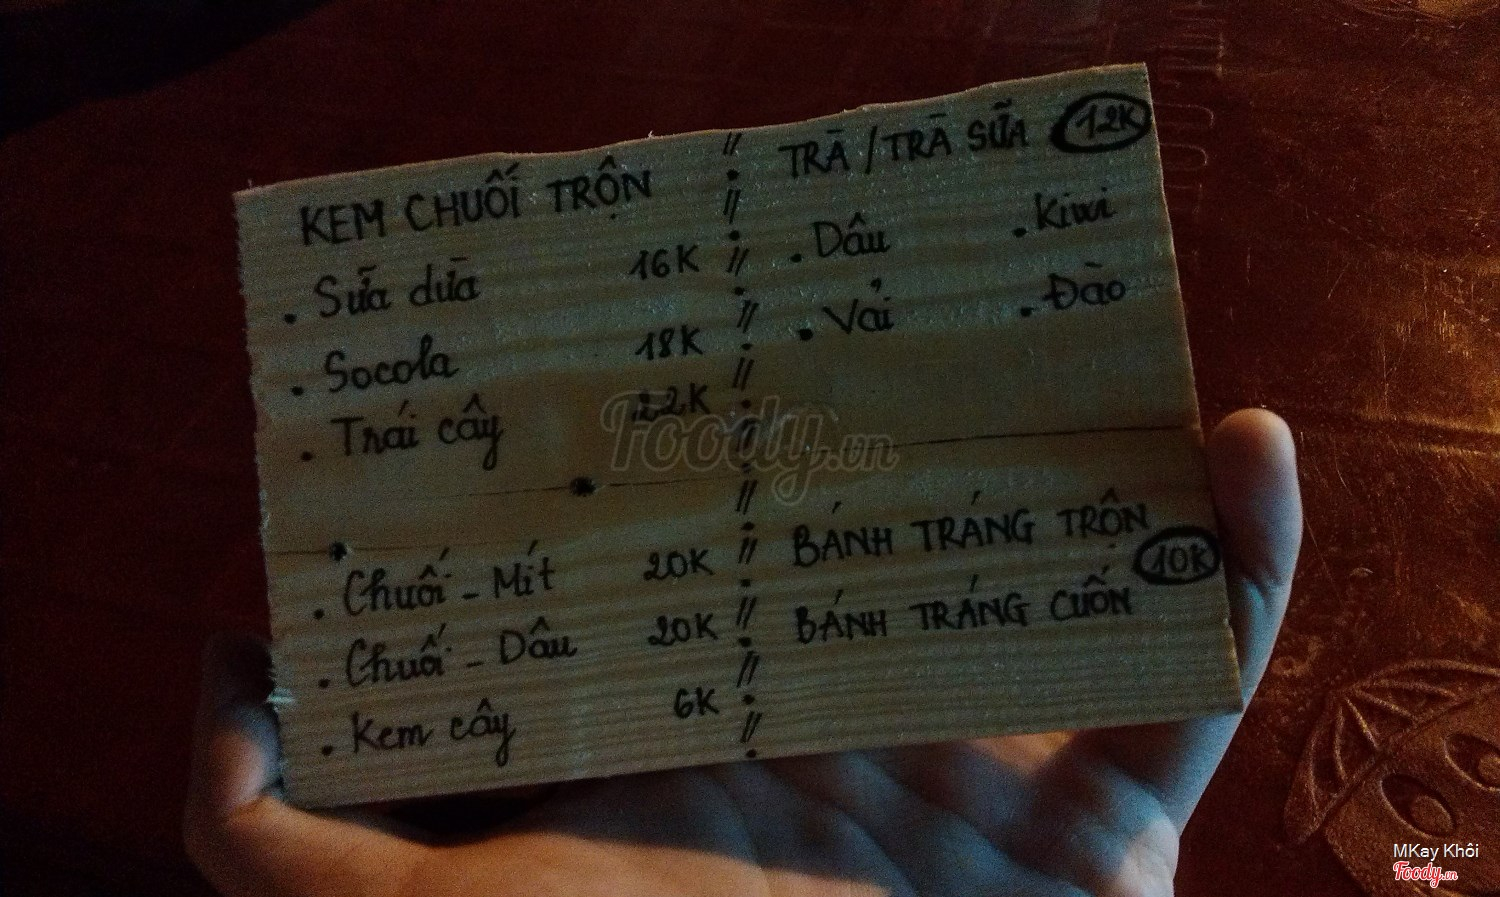 KEM CHUỐI TRỘN
. Sữa dừa 16K
. Socola 18K
. Trái cây 22K
. Chuối - Mít 20K
. Chuối - Dâu 20K
. Kem cây 6K
TRÀ / TRÀ SỮA 12K
. Dâu . Kiwi
. Vải . Đào
BÁNH TRÁNG TRỘN
10K
BÁNH TRÁNG CUỐN
Foody.vn
MKay Khôi
Foody.vn